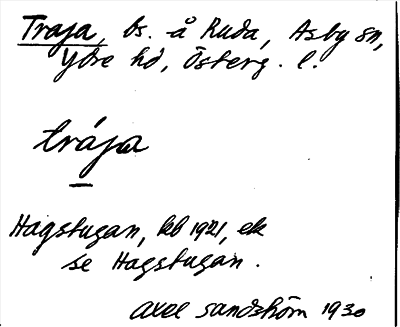 Traja, bs. å Ruda, Asby sn,
Ydre hd, Österg. l.
trája
Hagstugan, lkb 1921, ek
se Hagstugan.
Axel Sandström 1930